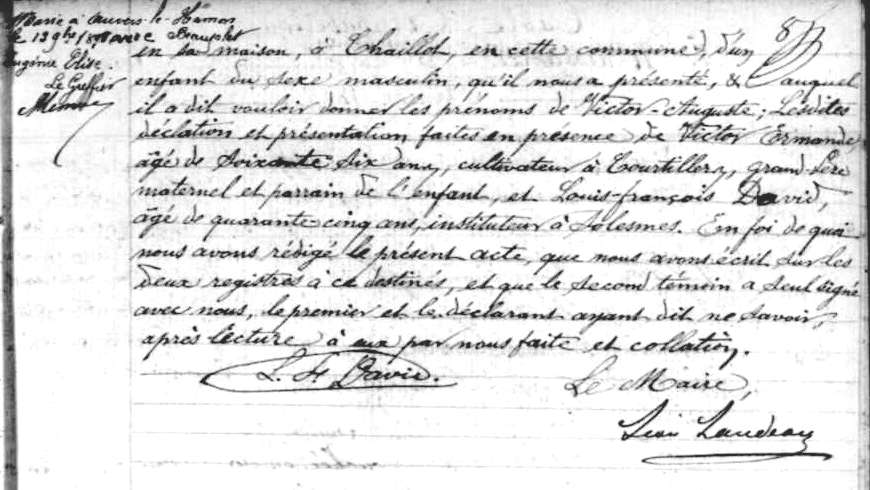 Marié à Auvers-le-Hamon
le 13 9bre avec Beauplet
Eugénie Elise.
Le Greffier
en sa maison, à Chaillot, en cette commune, d'un
enfant du sexe masculin, qu'il nous a présenté, & auquel
il a dit vouloir donner les prénoms de Victor-Auguste; Lesdites
déclation et présentation faites en présence de Victor Ormande
âgé de soixante-six ans, cultivateur à Courtillers, grand-père
maternel et parrain de l'enfant, et Louis-françois David,
âgé de quarante-cinq ans, instituteur à Solesmes. Em foi de quoi
nous avons rédigé le présent acte, que nous avons écrit sur les
deux registres à ce destinés, et que le second témoin a seul signé
avec nous, le premier et le déclarant ayant dit ne savoir,
après lecture à eux par nous faite et collation.
L. F. David.
Le Maire,
Léon Landeau